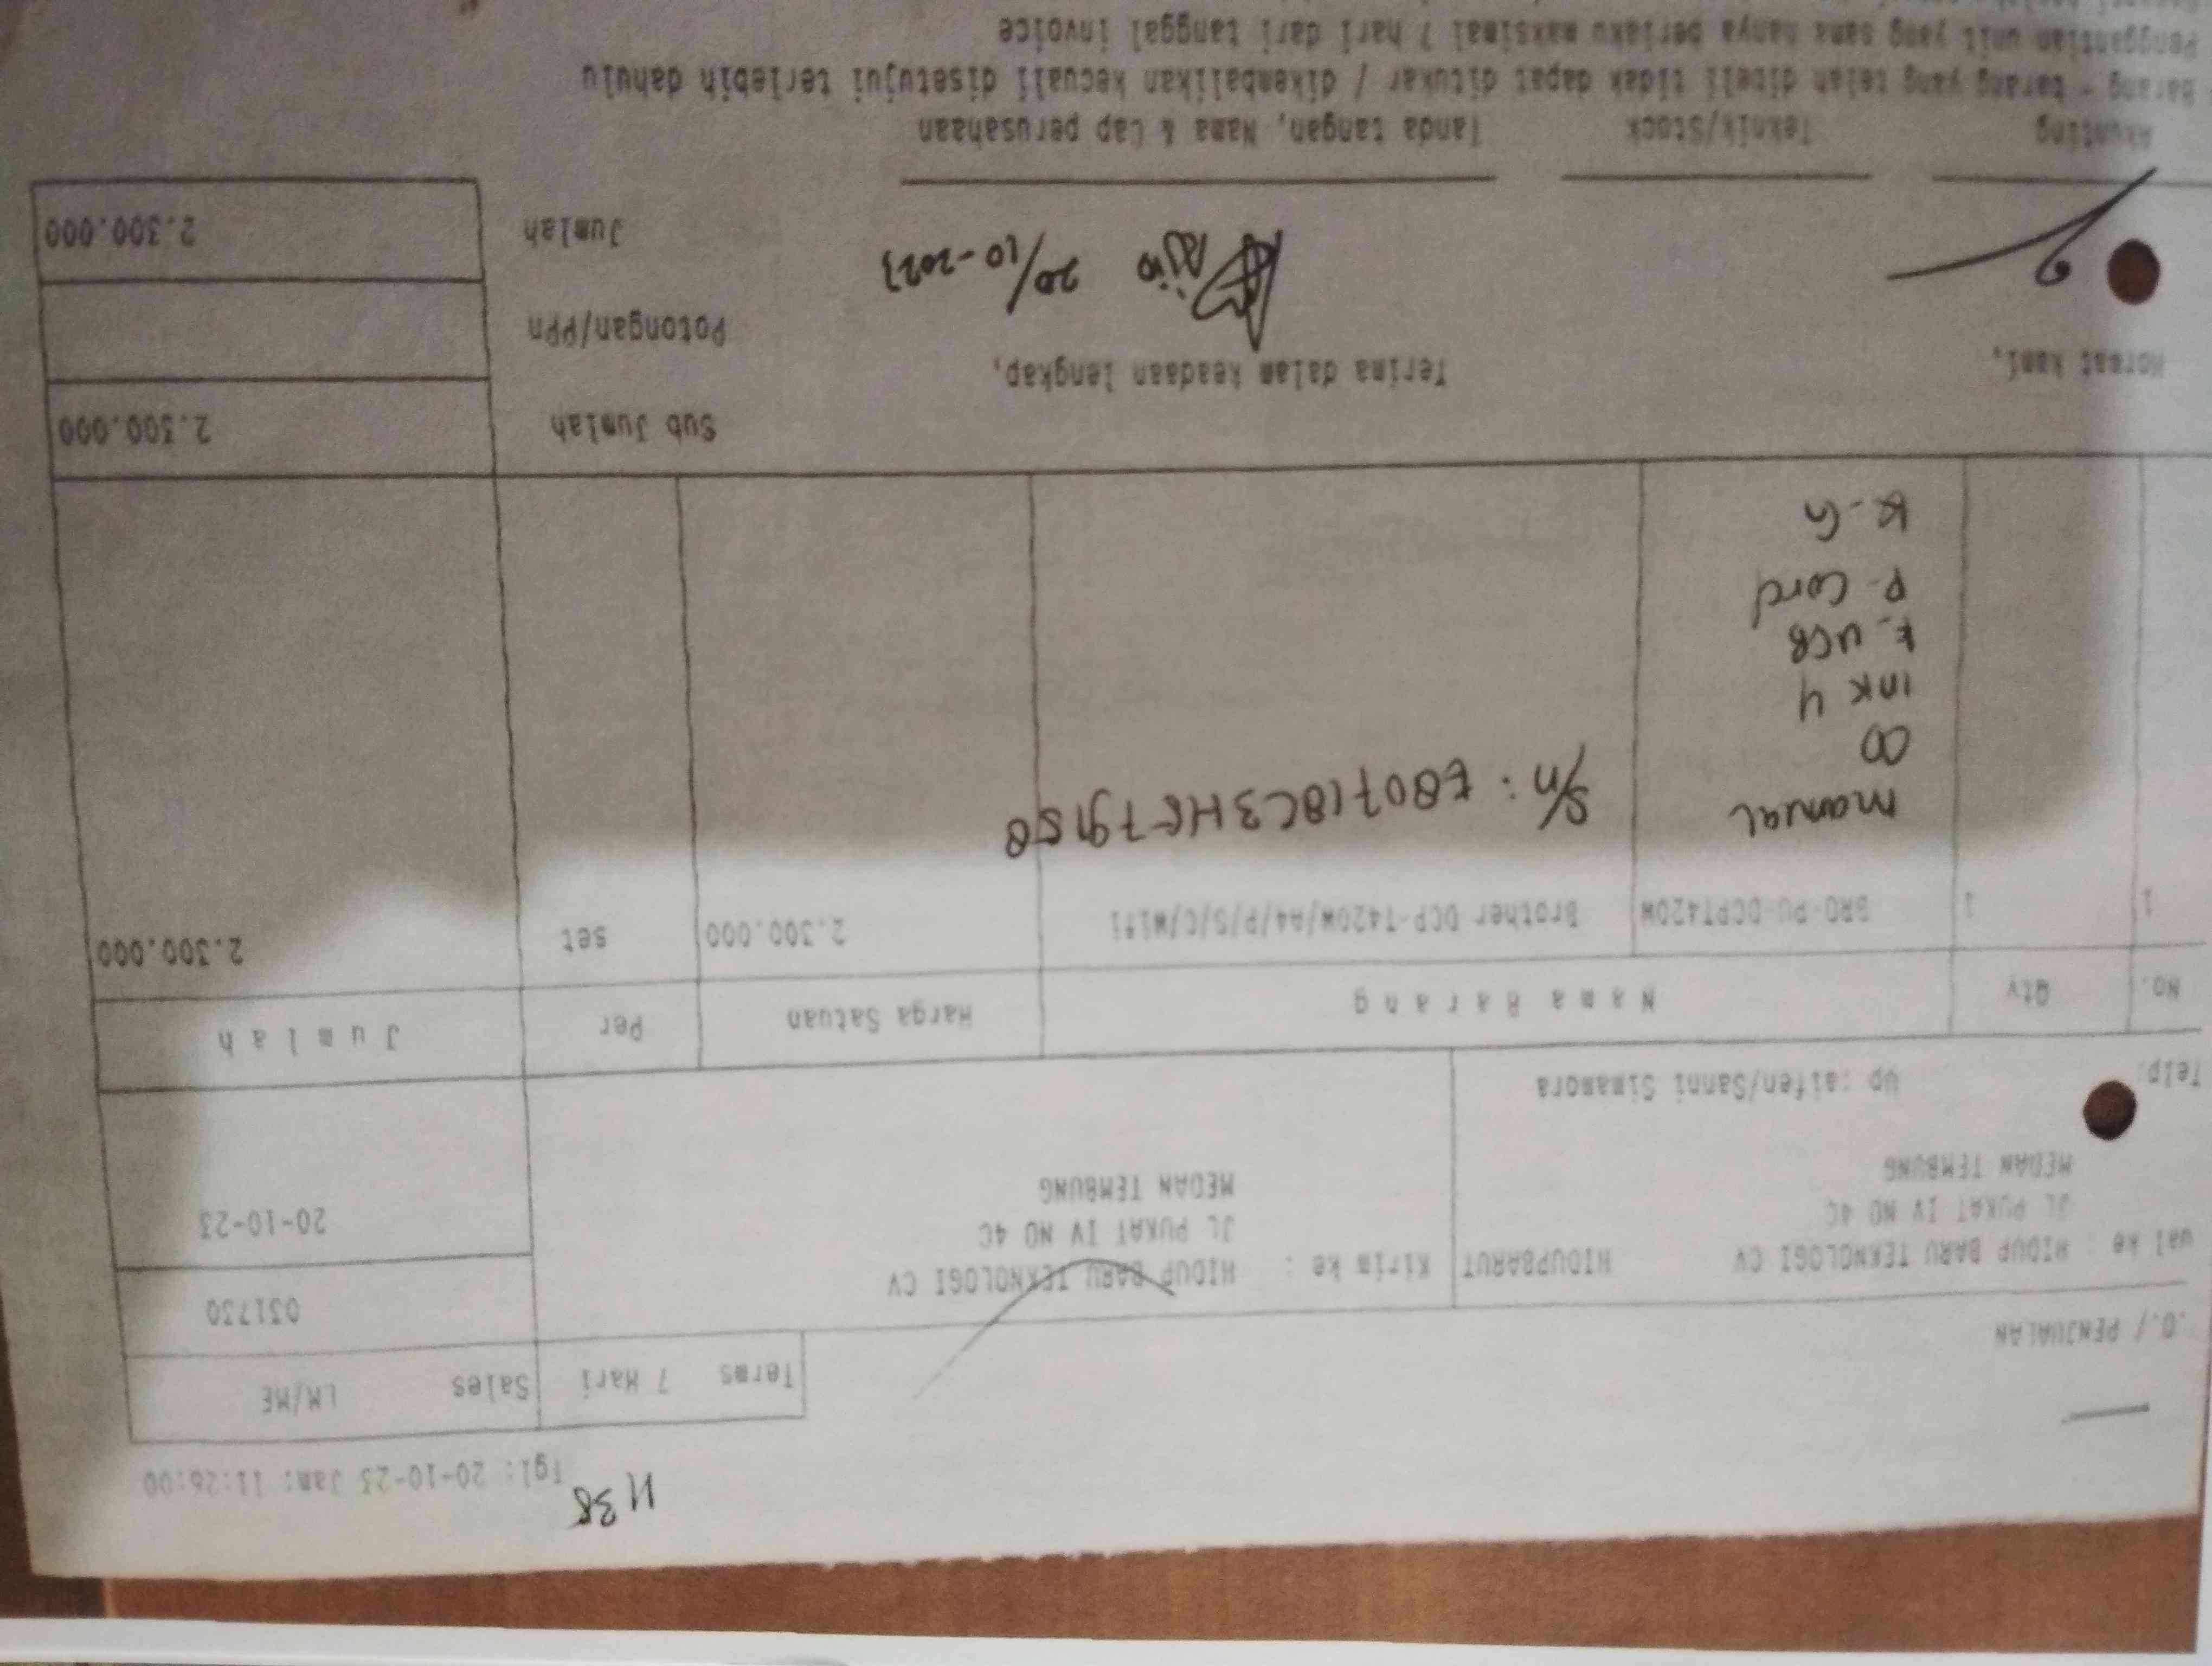 Tgl: 20-10-23 Jam: 11:26:00
1138
Terms 7 Hari Sales LM/ME
.O./ PENJUALAN
031730
ual ke : HIDUP BARU TEKNOLOGI CV HIDUPBARUT Kirim ke : HIDUP BARU TEKNOLOGI CV
JL PUKAT IV NO 4C JL PUKAT IV NO 4C 20-10-23
MEDAN TEMBUNG MEDAN TEMBUNG
Telp: Up :aifen/Sanni Simamora
No. Qty Nama Barang Harga Satuan Per Jumlah
1 1 BRO-PU-DCPT420W Brother DCP-T420W/A4/P/S/C/Wifi 2.300.000 set 2.300.000
manual S/n : E80718C3HF79158
CD
ink 4
k. UCB
P. Cord
K-G
Sub Jumlah 2.300.000
Hormat kami, Terima dalam keadaan lengkap,
Potongan/PPn
20/10-2023
Jumlah 2.300.000
Akunting Teknik/Stock Tanda tangan, Nama & Cap perusahaan
Barang - barang yang telah dibeli tidak dapat ditukar / dikembalikan kecuali disetujui terlebih dahulu
Penggantian unit yang sama hanya berlaku maksimal 7 hari dari tanggal invoice